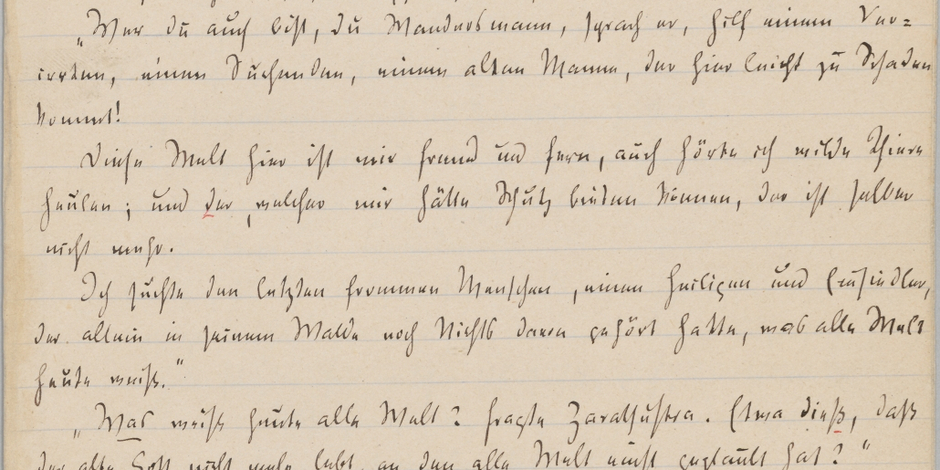 „Wer du auch bist, du Wandersmann, sprach er, hilf einem Ver=
irrten, einem Suchenden, einem alten Manne, der hier leicht zu Schaden
kommt!
Diese Welt hier ist mir fremd und fern, auch hörte ich wilde Thiere
heulen; und der, welcher mir hätte Schutz bieten können, der ist selber
nicht mehr.
Ich suchte den letzten frommen Menschen, einen Heiligen und Einsiedler,
der allein in seinem Walde noch Nichts davon gehört hatte, was alle Welt
heute weiß.“
„Was weiß heute alle Welt? fragte Zarathustra. Etwa dieß, daß
der alte Gott nicht mehr lebt, an den alle Welt einst geglaubt hat?“